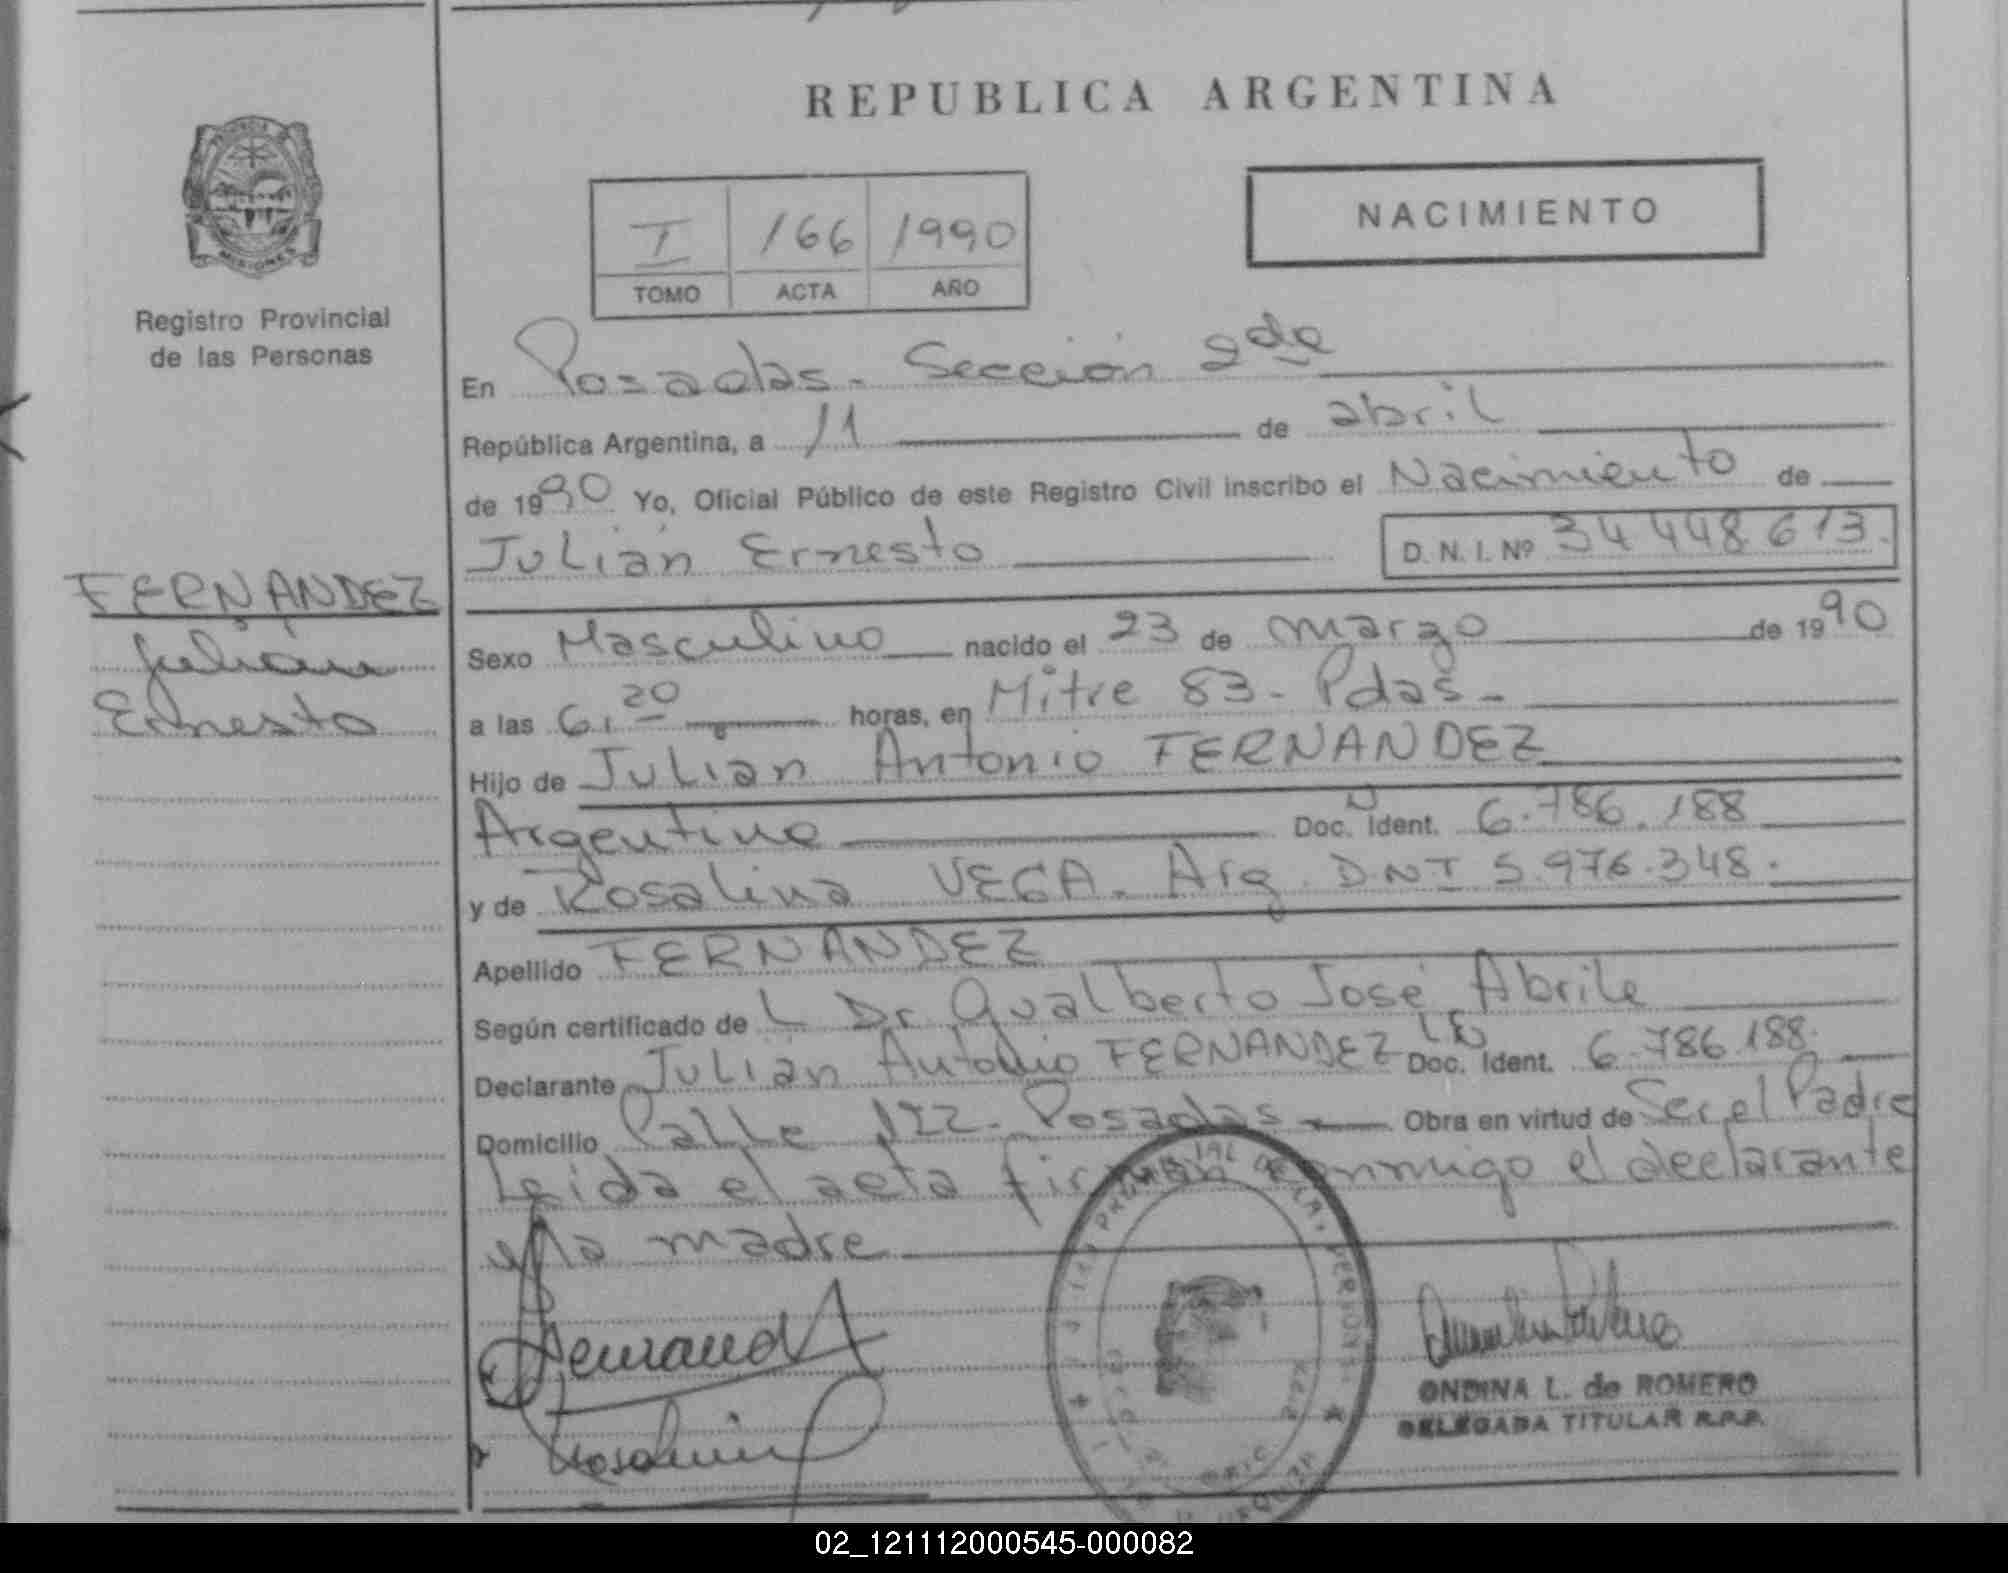 REPUBLICA ARGENTINA
NACIMIENTO
I 166 1990
TOMO ACTA AÑO
MISIONES
Registro Provincial
de las Personas
FERNANDEZ
Julián
Ernesto
En Posadas - Sección 2da
República Argentina, a 11 de abril
de 1990 Yo, Oficial Público de este Registro Civil inscribo el Nacimiento de
Julián Ernesto D. N. I. Nº 34 448 613.
Sexo Masculino nacido el 23 de marzo de 1990
a las 6,20 horas, en Mitre 83 - Pdas -
Hijo de Julian Antonio FERNANDEZ
Argentino Doc. Ident. 6.786.188
y de Rosalina VEGA. Arg. DNI 5.976.348.
Apellido FERNANDEZ
Según certificado de L Dr Gualberto José Abrile
Declarante Julián Antonio FERNANDEZ Doc. Ident. 6.786.188.
Domicilio Calle 122 - Posadas Obra en virtud de Ser el Padre
Leida el acta firman conmigo el declarante
y la madre
ONDINA L. de ROMERO
DELEGADA TITULAR R.P.P.
02_121112000545-000082